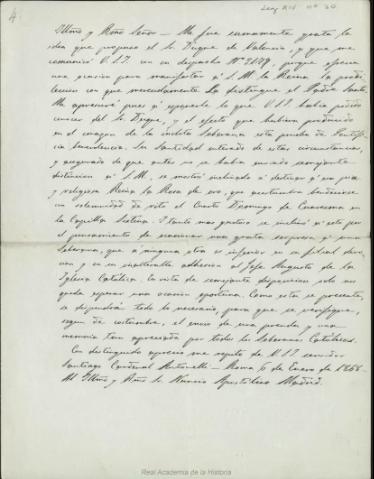 Leg XIV nº 30
4
Illmo y Rmo Señor – Me fue sumamente grata la
idea que propuso el Sr Duque de Valencia, y que me
comunicó V.S.I. en su despacho Nº, porque ofrece
una ocasión para manifestar á S.M. la Reina la predi-
leccion con que merecidamente La distingue el Padre Santo.
Me apresuré pues á esponerle lo que V.S.I. habia podido
conocer del Sr Duque, y el efecto que hubiera producido
en el corazon de la ínclita Soberana esta prueba de Pontifi-
cia benevolencia. Su Santidad enterado de estas circunstancias,
y asegurado de que antes no se habia enviado semejante
distincion á S.M., se mostró inclinado á destinar á su pia
y religiosa Reina la Rosa de oro, que acostumbra bendecirse
con solemnidad de rito el Cuarto Domingo de Cuaresma en la
Capilla Sixtina. I tanto mas gustoso se inclinó á esto por
el pensamiento de ocasionar una grata sorpresa á una
Soberana, que á ninguna otra es inferior en su filial devo-
cion y en su inalterable adhesion al Jefe Augusto de la
Iglesia Católica. En vista de semejante disposicion solo nos
queda esperar una ocasion oportuna. Como esta se presente,
se dispondrá todo lo necesario, para que se verifique,
segun de costumbre, el envio de una prenda y una
memoria tan apreciada por todos los Soberanos Católicos.
Con distinguido aprecio me repito de V.S.I. servidor
Santiago Cardenal Antonelli – Roma 6 de Enero de 1868.
Al Illmo y Rmo Sr Nuncio Apostólico Madrid.
Real Academia de la Historia